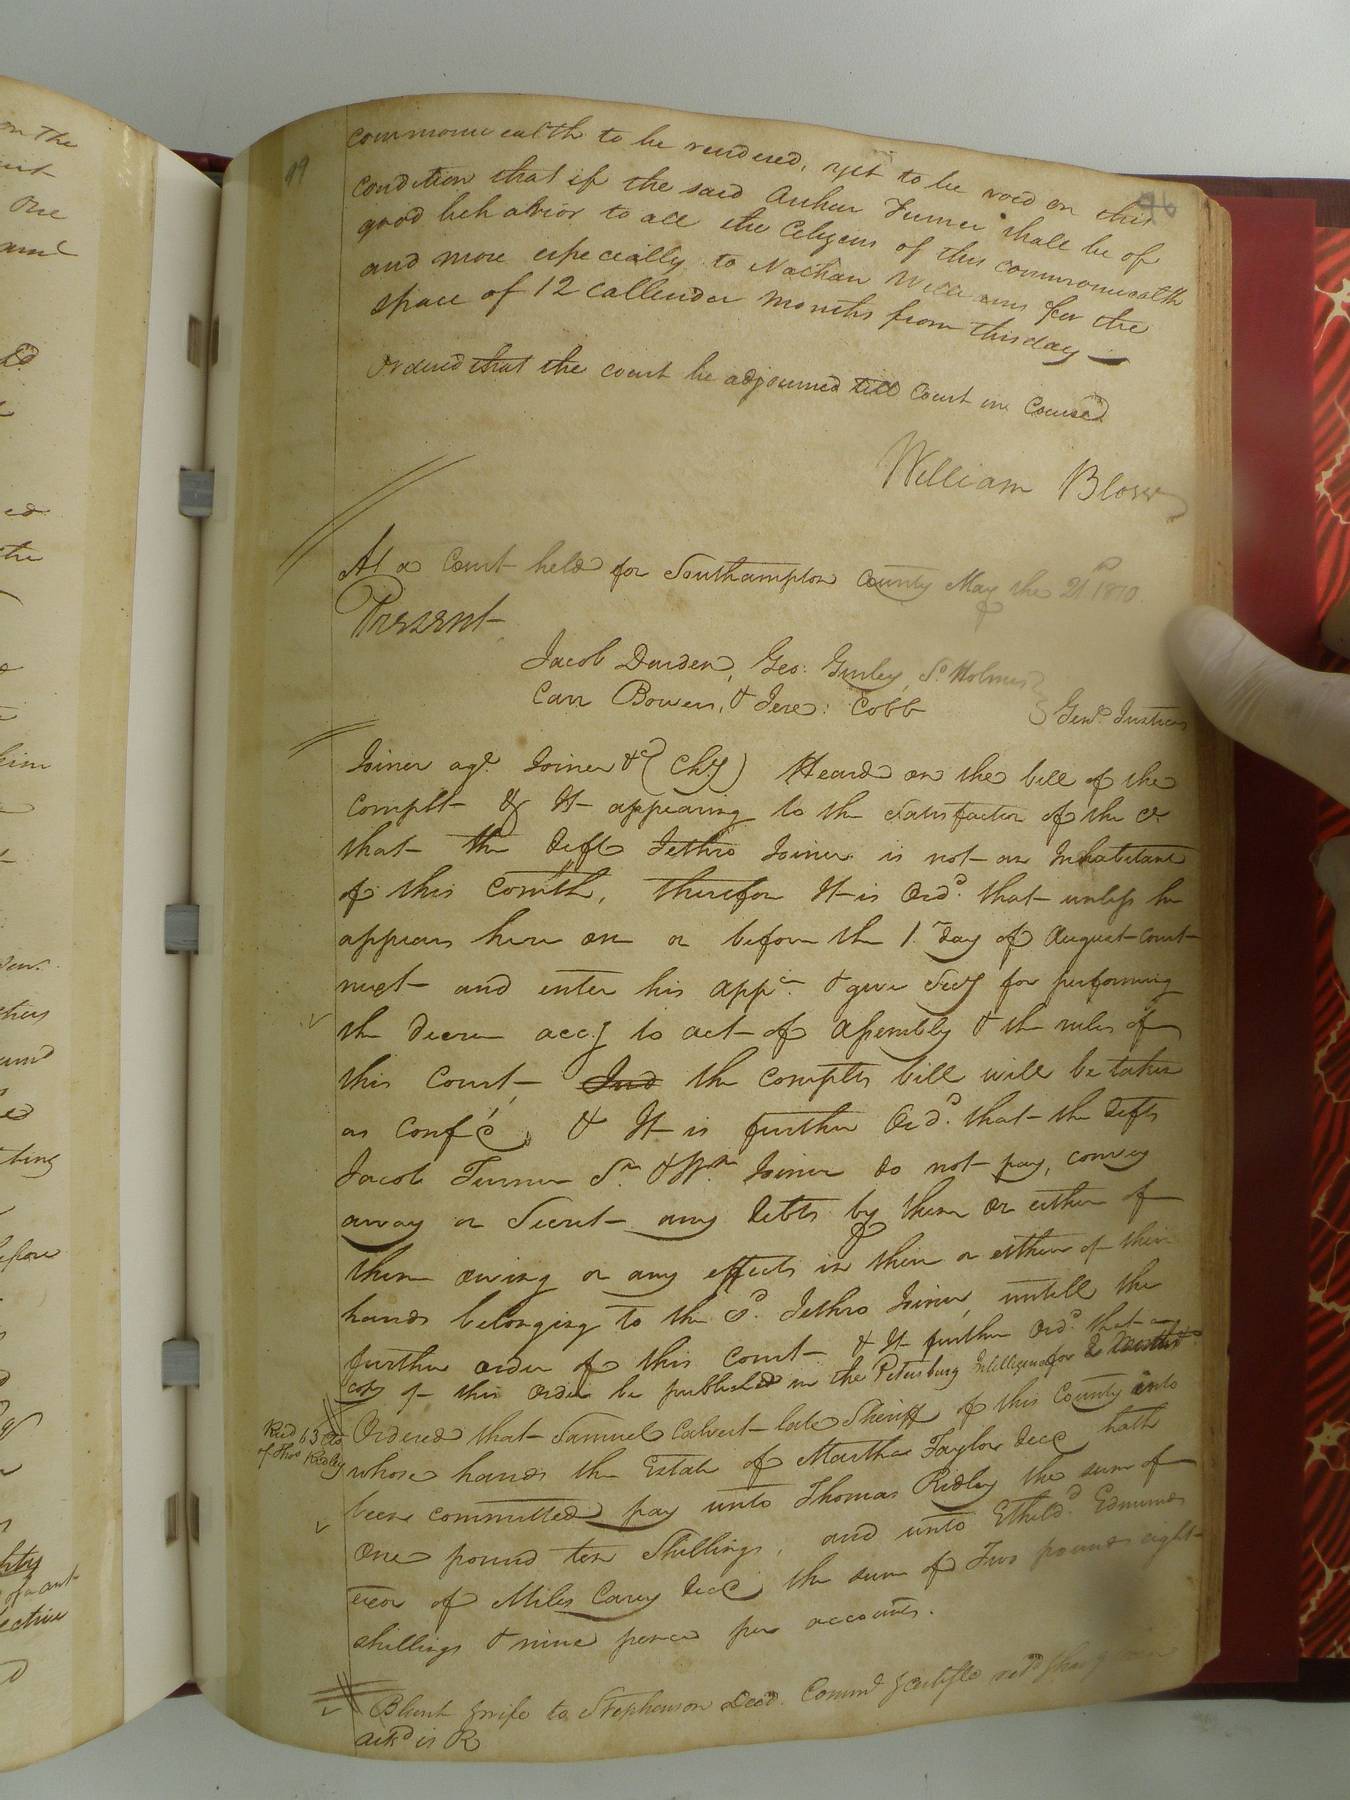 commonwealth to be rendered, yet to be void on this
condition that if the said Arthur Turner shall be of
good behavior to all the Citizens of this commonwealth
and more especially to Nathan Williams for the
space of 12 callender months from this day
Ordered that the court be adjourned till Court in Course
William Blow
At a Court held for Southampton County May the 21st 1810.
Present
Jacob Darden, Geo: Gurley, Sl Holmes
Carr Bowers, & Jere: Cobb Gent Justices
Joiner agt Joiner &c (Chy) Heard on the bill of the
Complt & It appearing to the satisfaction of the Ct
that the Deft Jethro Joiner is not an Inhabitant
of this Comth, therefore It is Ordd that unless he
appears here on or before the 1st day of August court
next and enter his appce & give Secy for performing
the decree accg to act of Assembly & the rules of
this Court, the complts bill will be taken
as Confd, & It is further Ordd that the Defts
Jacob Turner Sr & Wm Joiner do not pay, convey
away or Secret any debts by them or either of
them owing or any effects in their or either of their
hands belonging to the sd Jethro Joiner, untill the
further order of this court & It further Ordd that a
copy of this Order be published in the Petersburg Intelligencer for 2 Months
Ordered that Samuel Calvert late Sheriff of this County into
Recd 63 Cts
of Thos Ridley
whose hands the Estate of Martha Taylor decd hath
been committed pay unto Thomas Ridley the sum of
one pound ten Shillings, and unto Etheldd Edmunds
exor of Miles Cary decd the sum of Two pounds eight
shillings & nine pence per accounts.
Blunt & wife to Stephenson Deed. Commn & certifte retd
ackd is R